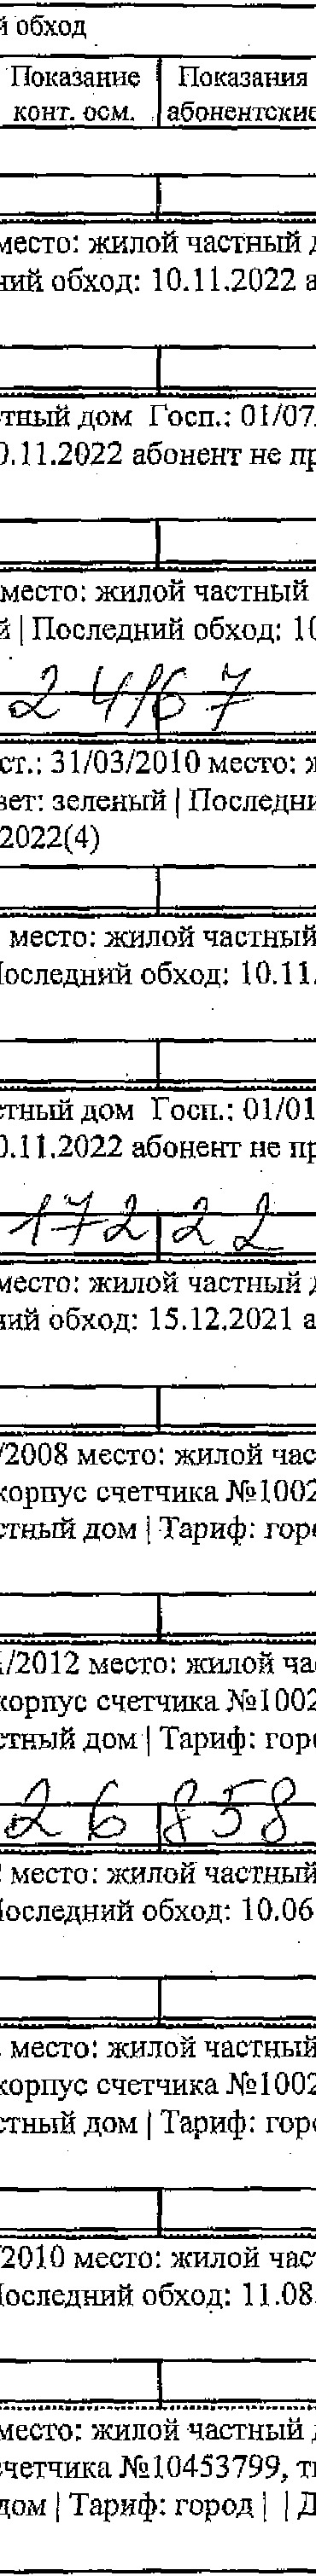 й обход
Показание Показания
конт. осм. абонентские
место: жилой частный д
ний обход: 10.11.2022 а
тный дом Госп.: 01/07
0.11.2022 абонент не пр
место: жилой частный
й | Последний обход: 10
24167
ст.: 31/03/2010 место: ж
вет: зеленый | Последни
2022(4)
место: жилой частный
Последний обход: 10.11.
стный дом Госп.: 01/01
0.11.2022 абонент не пр
17222
место: жилой частный д
ний обход: 15.12.2021 а
/2008 место: жилой час
корпус счетчика №1002
стный дом | Тариф: горо
/2012 место: жилой час
корпус счетчика №1002
стный дом | Тариф: горо
26858
место: жилой частный
Последний обход: 10.06
место: жилой частный
корпус счетчика №1002
стный дом | Тариф: горо
/2010 место: жилой част
Последний обход: 11.08.
место: жилой частный д
счетчика №10453799, ти
дом | Тариф: город | | Д